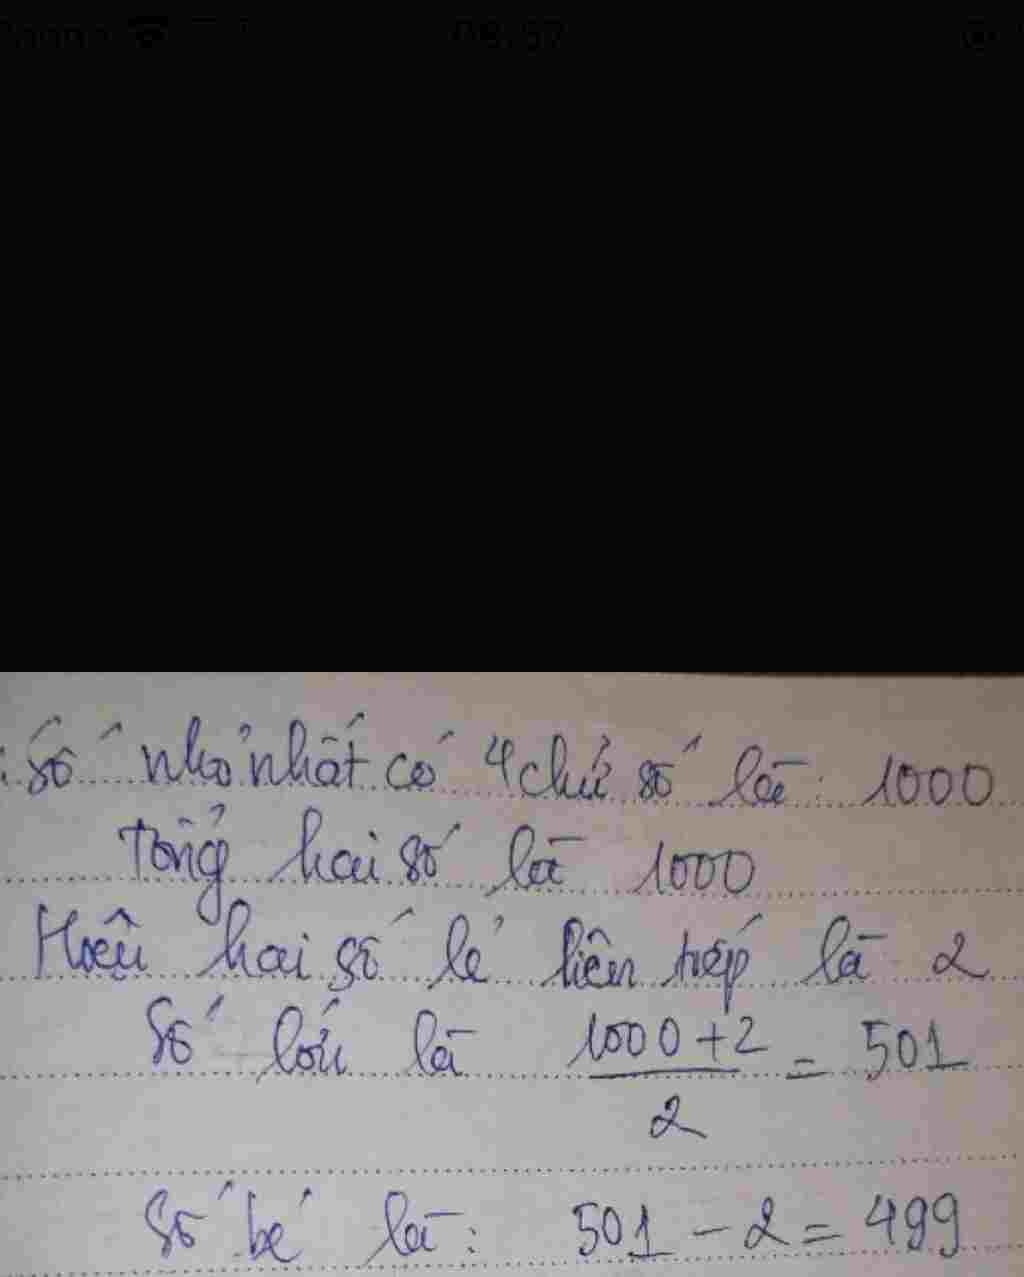 08:57
: Số nhỏ nhất có 4 chữ số là: 1000
Tổng hai số là 1000
Hiệu hai số lẻ liên tiếp là 2
Số lớn là 1000+2 / 2 = 501
Số bé là: 501 - 2 = 499